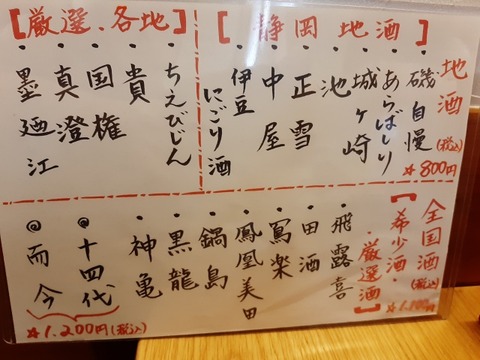 地酒
(税込)
☆800円
【静岡地酒】
・磯自慢
・あらばしり
・城ヶ崎
・池
・正雪
・中屋
・伊豆
にごり酒
【厳選.各地】
・ちえびじん
・貴
・国権
・真澄
・墨廼江
全国酒(税込)
【希少酒・
厳選酒】
・飛露喜
・田酒
・寫楽
・鳳凰美田
・鍋島
・黒龍
・神亀
◎十四代
◎而今
☆1.200円(税込)